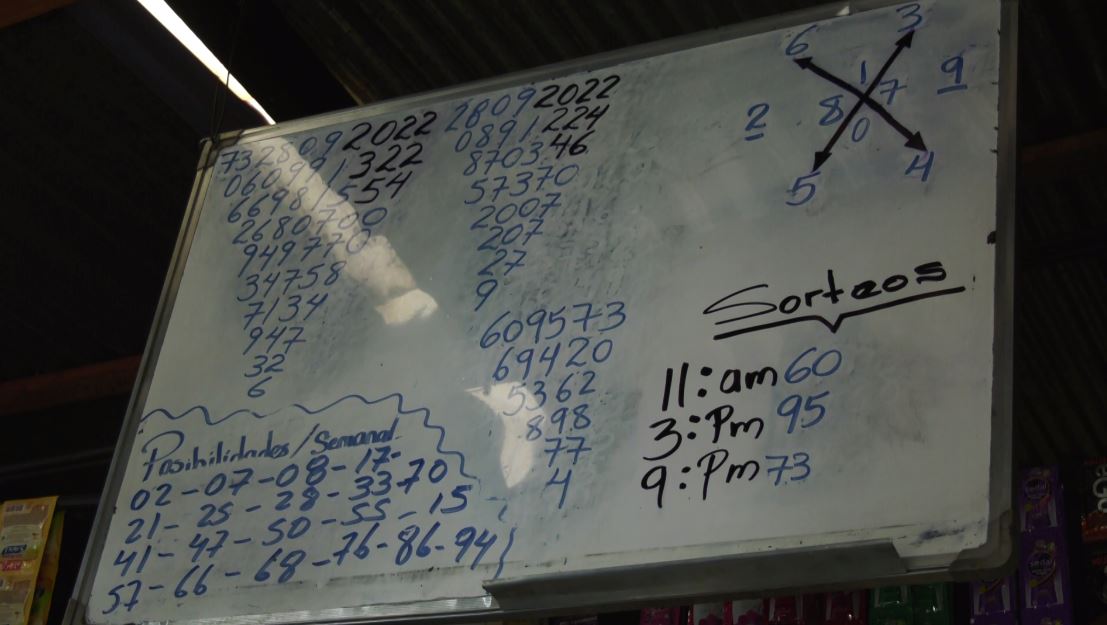 7328092022
060921322
66981554
2680700
949770
34758
7134
947
32
6
28092022
0891224
870346
57370
2007
207
27
9
609573
69420
5362
898
77
4
6 3
1
2 8 7 9
0
5 4
Sorteos
11:am 60
3:Pm 95
9:Pm 73
Posibilidades/Semanal
02-07-08-17-
21-25-28-33 70
41-47-50-55-15
57-66-68-76-86-94